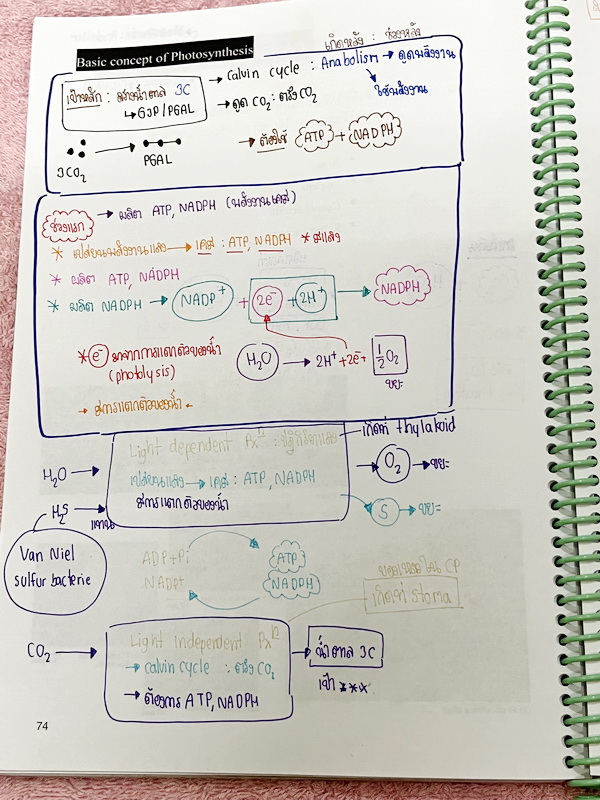 Basic concept of Photosynthesis
เกิดหลัง : ช่วงหลัง
เป้าหลัก : สร้างน้ำตาล 3C
↳ G3P/PGAL
→ Calvin cycle : Anabolism → ดูดพลังงาน
ใช้พลังงาน
→ ดูด CO₂ : ตรึง CO₂
→ ต้องใช้ ATP + NADPH
3CO₂ → PGAL
ช่วงแรก → ผลิต ATP, NADPH (พลังงานเคมี)
* เปลี่ยนพลังงานแสง → เคมี : ATP, NADPH * มีแสง
* ผลิต ATP, NADPH
* ผลิต NADPH → NADP⁺ + 2e⁻ + 2H⁺ → NADPH
* e⁻ มาจากการแตกตัวของน้ำ
(photolysis)
H₂O → 2H⁺ + 2e⁻ + ½O₂
ขยะ
→ มีการแตกตัวของน้ำ
เกิดที่ thylakoid
Light dependent Rxⁿ : ปฏิกิริยาแสง
H₂O →
เปลี่ยนแสง → เคมี : ATP, NADPH
→ O₂ → ขยะ
H₂S แทน
มีการแตกตัวของน้ำ
S → ขยะ
Van Niel
sulfur bacterie
ADP+Pi
ATP
NADP+
NADPH
ของเหลวใน CP
เกิดที่ stoma
Light independent Rxⁿ
CO₂ →
→ calvin cycle : ตรึง CO₂
→ น้ำตาล 3C
→ ต้องการ ATP, NADPH
เป้า ***
74